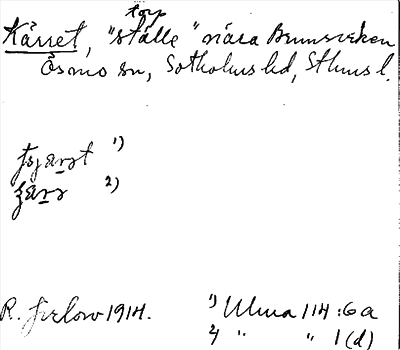 torp
Kärret, "ställe" nära Brunnsviken
Ösmo sn, Sotholms hd, Sthms l.
1)
2)
R. 1914. 1) Ulma 114:6a
2) " " 1(d)